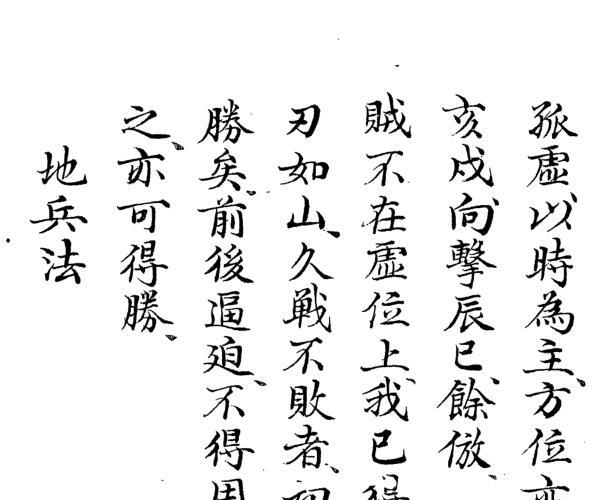 孤虛以時為主、方位亦
亥戌向擊辰巳、餘倣、
賊不在虛位上、我已得
刃如山、久戰不敗者、
勝矣、前後逼迫、不得用
之、亦可得勝、
地兵法